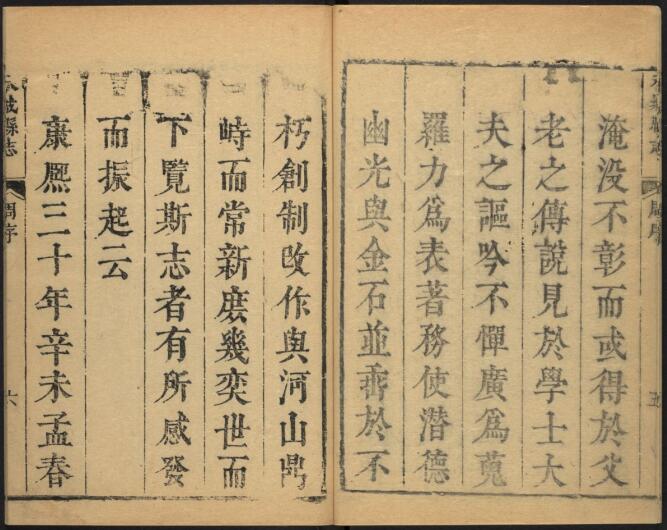 淹没不彰而或得於父
老之傳說見於學士大
夫之謳吟不憚廣為蒐
羅力爲表著務使潛德
幽光與金石並垂於不
五
朽創制改作與河山鼎
峙而常新庶幾奕世而
下覽斯志者有所感發
而振起云
康熙三十年辛未孟春
城縣志
周序
六